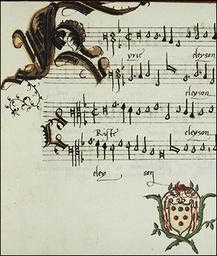 Kyrie eleyson
eleyson
eleyson
Xpiste eleyson
eley son